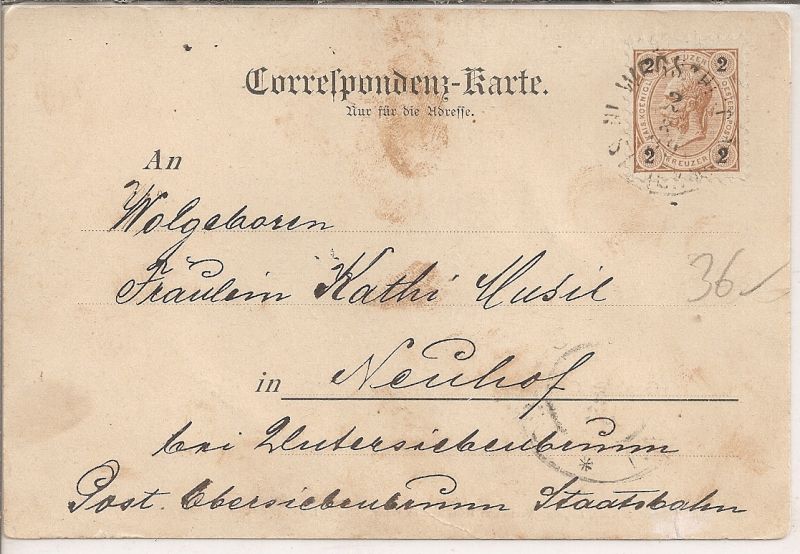 Correspondenz-Karte.
Nur für die Adresse.
2 2
2 2
KREUZER
An
Wolgeboren
Fräulein Kathi Musil
36
in Neuhof
bei Untersiebenbrunn
Post. Obersiebenbrunn Staatsbahn